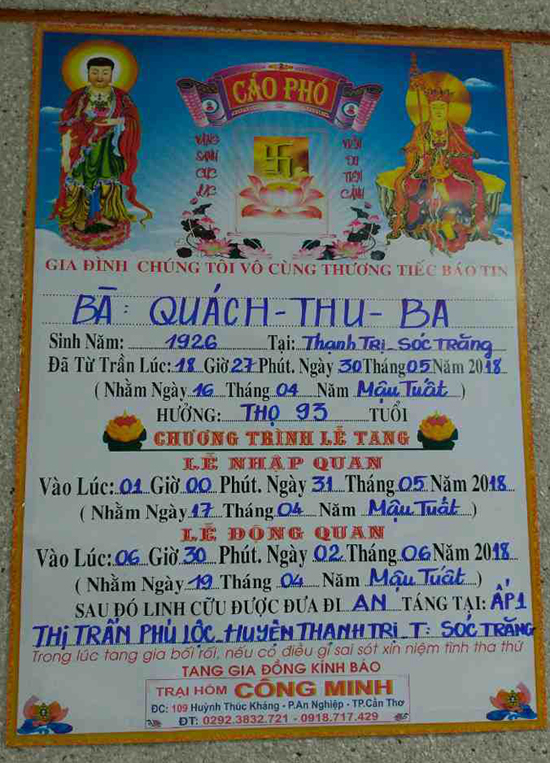 CÁO PHÓ
VÃNG SANH CỰC LẠC
VIÊN DU TIÊN CẢNH
GIA ĐÌNH CHÚNG TÔI VÔ CÙNG THƯƠNG TIẾC BÁO TIN
BÀ: QUÁCH-THU-BA
Sinh Năm: 1926 Tại: Thạnh Trị - Sóc Trăng
Đã Từ Trần Lúc: 18 Giờ 27 Phút. Ngày 30 Tháng 05 Năm 2018
( Nhằm Ngày 16 Tháng 04 Năm Mậu Tuất )
HƯỞNG: THỌ 93 TUỔI
CHƯƠNG TRÌNH LỄ TANG
LỄ NHẬP QUAN
Vào Lúc: 01 Giờ 00 Phút. Ngày 31 Tháng 05 Năm 2018
( Nhằm Ngày 17 Tháng 04 Năm Mậu Tuất )
LỄ ĐỘNG QUAN
Vào Lúc: 06 Giờ 30 Phút. Ngày 02 Tháng 06 Năm 2018
( Nhằm Ngày 19 Tháng 04 Năm Mậu Tuất )
SAU ĐÓ LINH CỮU ĐƯỢC ĐƯA ĐI AN TÁNG TẠI: ẤP 1
THỊ TRẤN PHÚ LỘC - HUYỆN THẠNH TRỊ - T: SÓC TRĂNG
Trong lúc tang gia bối rối, nếu có điều gì sai sót xin niệm tình tha thứ
TANG GIA ĐỒNG KÍNH BÁO
TRẠI HÒM CÔNG MINH
ĐC: 109 Huỳnh Thúc Kháng - P.An Nghiệp - TP.Cần Thơ
ĐT: 0292.3832.721 - 0918.717.429